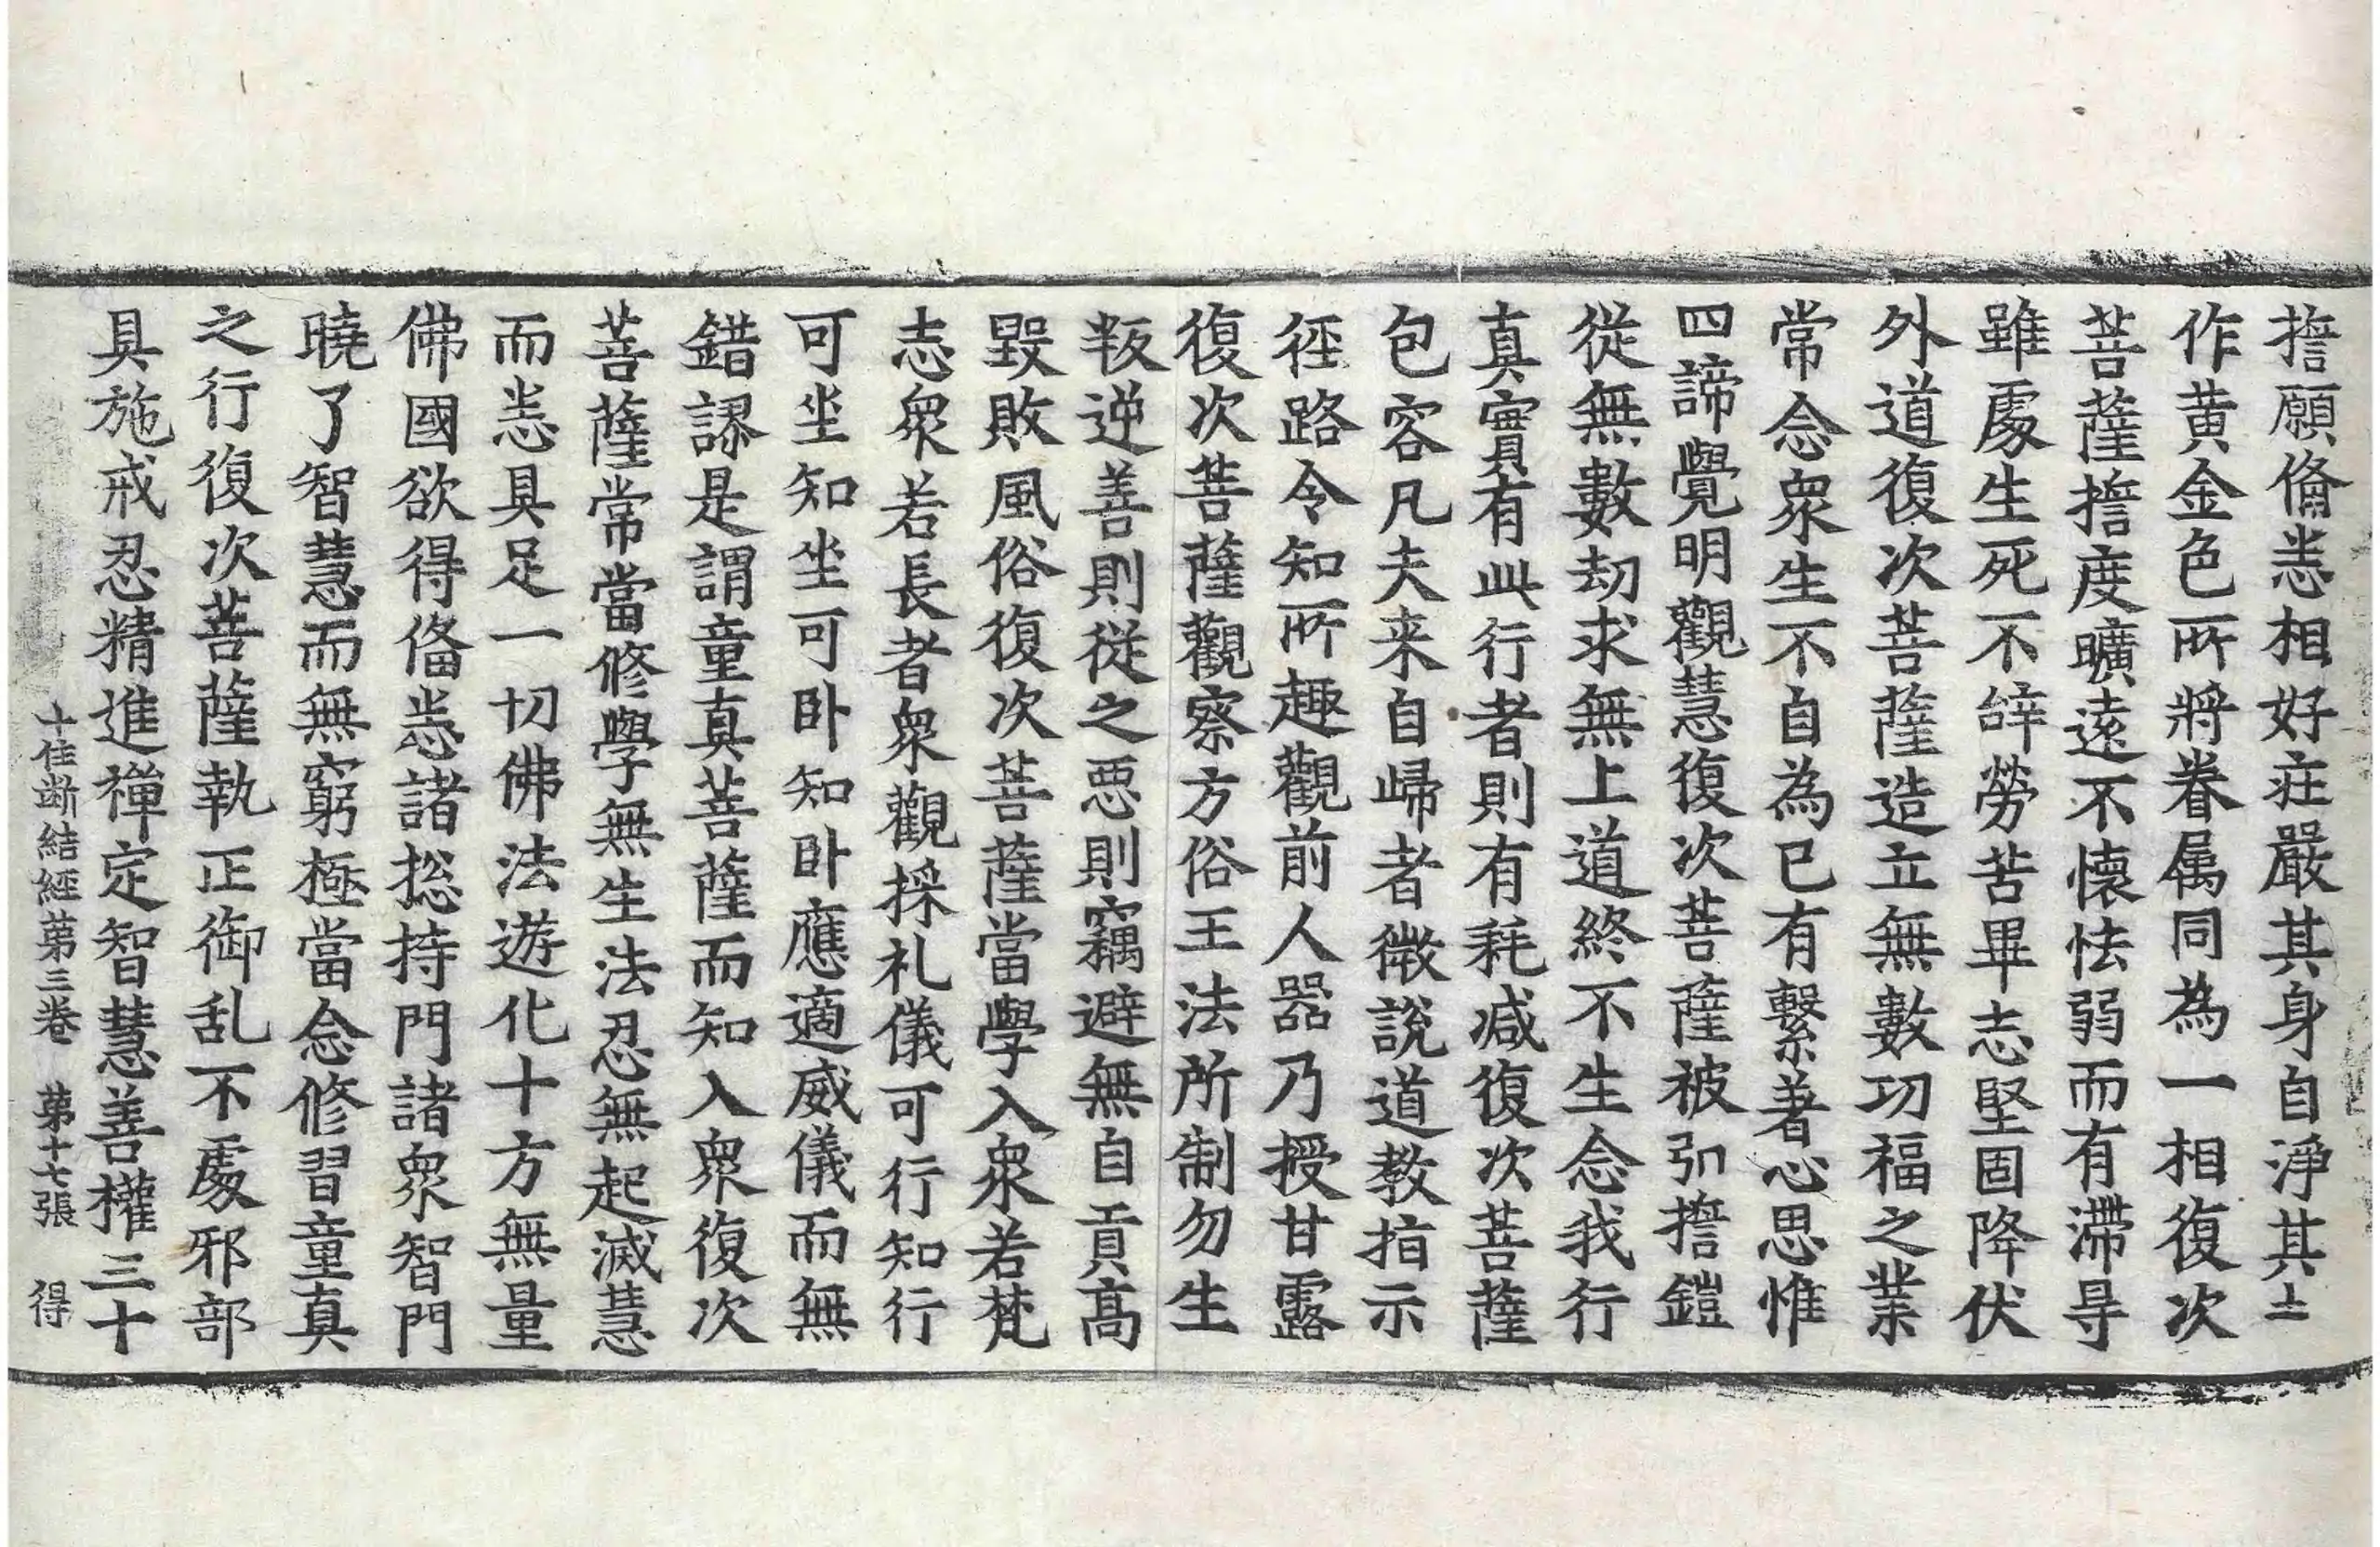 擔願俻恙相好莊嚴其身自淨其土
作黄金色所將眷属同為一相復次
菩薩擔度曠遠不懷怯弱而有滯㝵
雖處生死不辝勞苦畢志堅固降伏
外道復次菩薩造立無數功福之業
常念衆生不自為已有繫著心思惟
四諦覺明觀慧復次菩薩被弘擔鎧
從無數劫求無上道終不生念我行
真實有此行者則有耗减復次菩薩
包容凡夫来自歸者徵說道教指示
徑路令知所趣觀前人器乃授甘露
復次菩薩觀察方俗王法所制勿生
叛逆善則從之惡則竊避無自貢高
毀敗風俗復次菩薩當學入衆若梵
志衆若長者衆觀採礼儀可行知行
可坐知坐可卧知卧應適威儀而無
錯謬是謂童真菩薩而知入衆復次
菩薩常當修學無生法忍無起滅慧
而恙具足一切佛法遊化十方無量
佛國欲得俻恙諸揔持門諸衆智門
曉了智慧而無窮極當念修習童真
之行復次菩薩執正御乱不處邪部
具施戒忍精進禅定智慧善權三十
十住断結經苐三卷 苐十七張 得